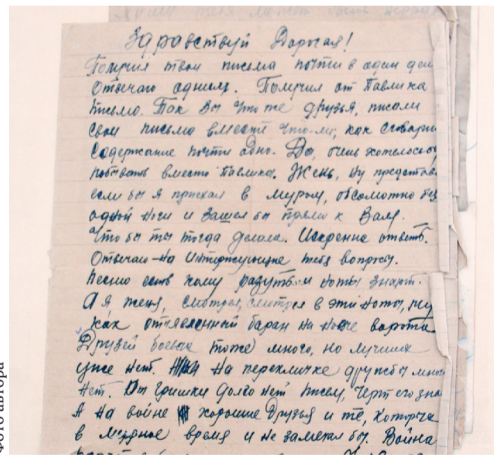 Здравствуй Дорогая!
Получил твои письма почти в один день
Отвечаю одним. Получил от Павлика
письмо. Так Вы что же друзья, писали
свои письма вместе что-ли, как сговори
Содержание почти одно. Да, очень хотелось бы
побывать вместо Павлика. Жень, ну представь
если бы я приехал в Муром, абсолютно без
одной ноги и зашел бы прямо к Вам.
Что бы ты тогда делала. Искренно ответь.
Отвечаю на интересующие тебя вопросы.
Песню есть кому и ноты знают.
А я Женя, смотрел, смотрел в эти ноты, ну
как отъявленный баран на новые ворота
Друзей боевых тоже много, но лучших
уже нет. На перекличке дружбы многих
нет. От Гришки долго нет писем, черт его зна
А на войне хорошие друзья и те, которых
в мирное время и не замечал бы. Война
Фото автора